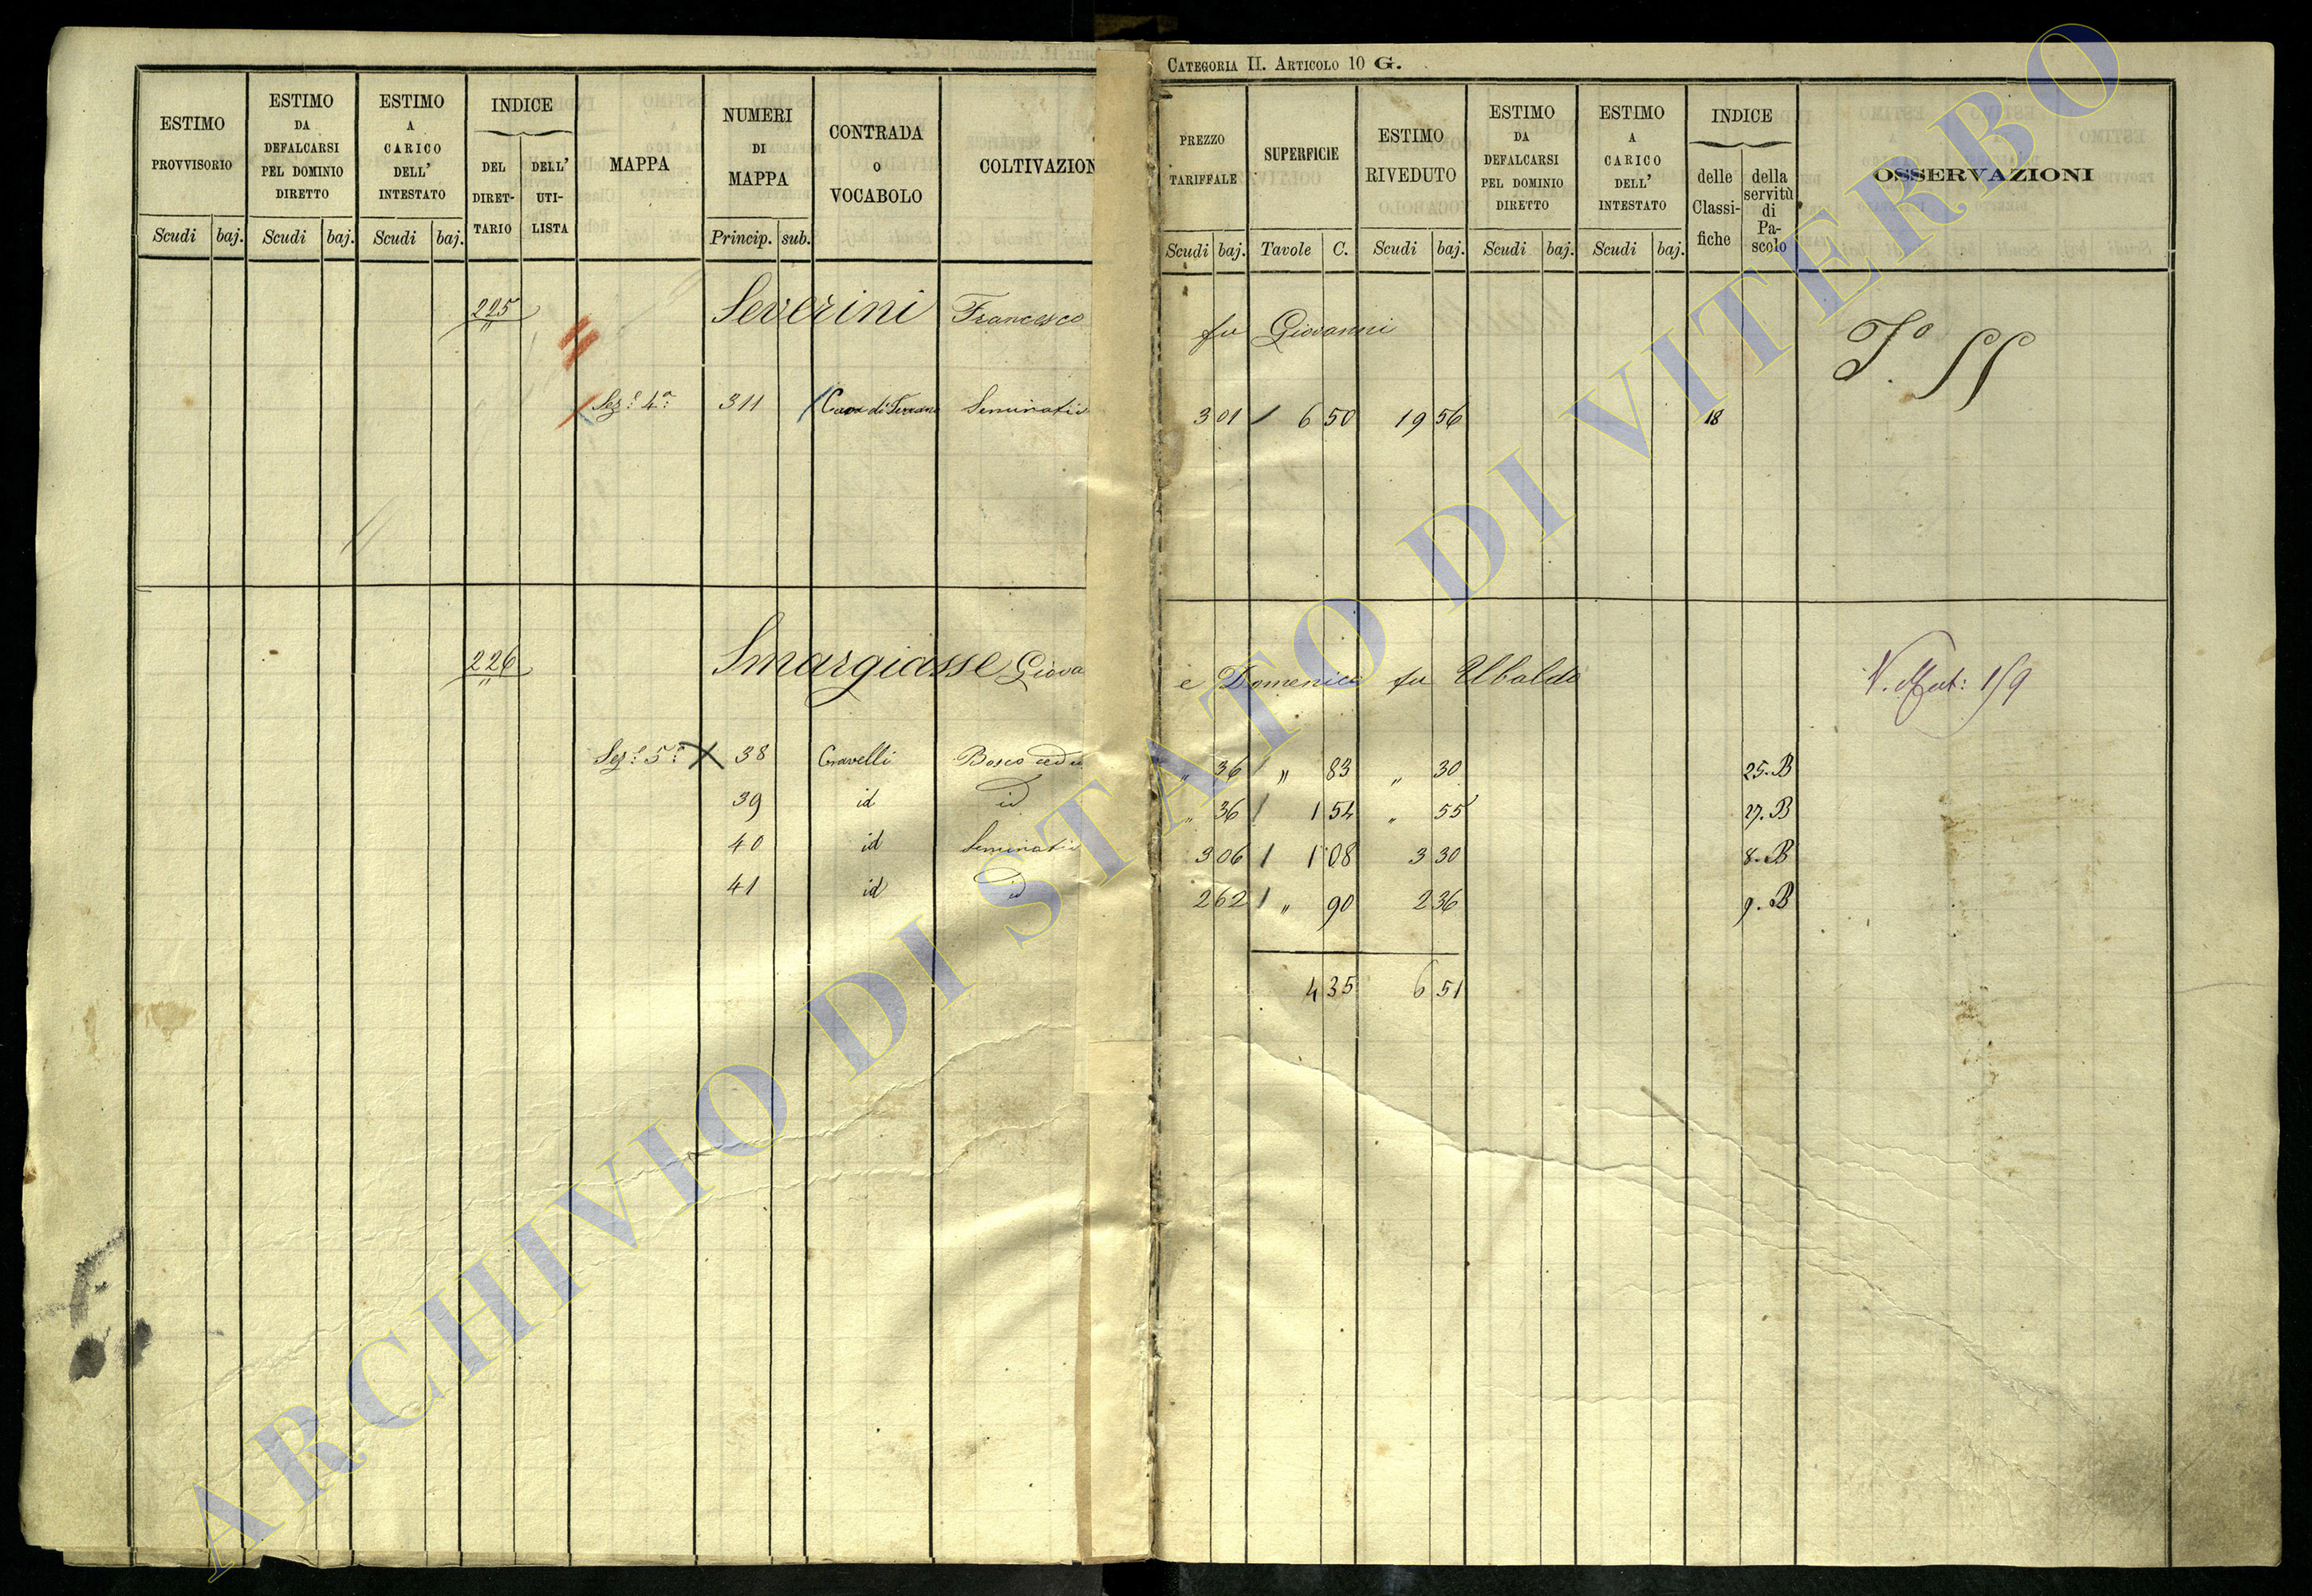 CATEGORIA II. ARTICOLO 10 G.
ESTIMO PROVVISORIO
Scudi baj.
ESTIMO DA DEFALCARSI PEL DOMINIO DIRETTO
Scudi baj.
ESTIMO A CARICO DELL' INTESTATO
Scudi baj.
INDICE
DEL DIRET-TARIO
DELL' UTI-LISTA
MAPPA
NUMERI DI MAPPA
Princip. sub.
CONTRADA O VOCABOLO
COLTIVAZION
PREZZO TARIFFALE
Scudi baj.
SUPERFICIE
Tavole C.
ESTIMO RIVEDUTO
Scudi baj.
ESTIMO DA DEFALCARSI PEL DOMINIO DIRETTO
Scudi baj.
ESTIMO A CARICO DELL' INTESTATO
Scudi baj.
INDICE
delle Classi-fiche
della servitù di Pa-scolo
OSSERVAZIONI
225 Severini Francesco fu Giovanni
Sez.e 4a 311 Seminativ 3 01 6 50 19 56 18
226 Smargiasse Giova e Domenico fu Ubaldo
Sez.e 5a 38 Gravelli Bosco ced " 36 " 83 " 30 25.B
39 id id " 36 1 54 " 55 27.B
40 id Seminativ 3 06 1 08 3 30 8.B
41 id id 2 62 " 90 2 36 9.B
4 35 6 51
ARCHIVIO DI STATO DI VITERBO